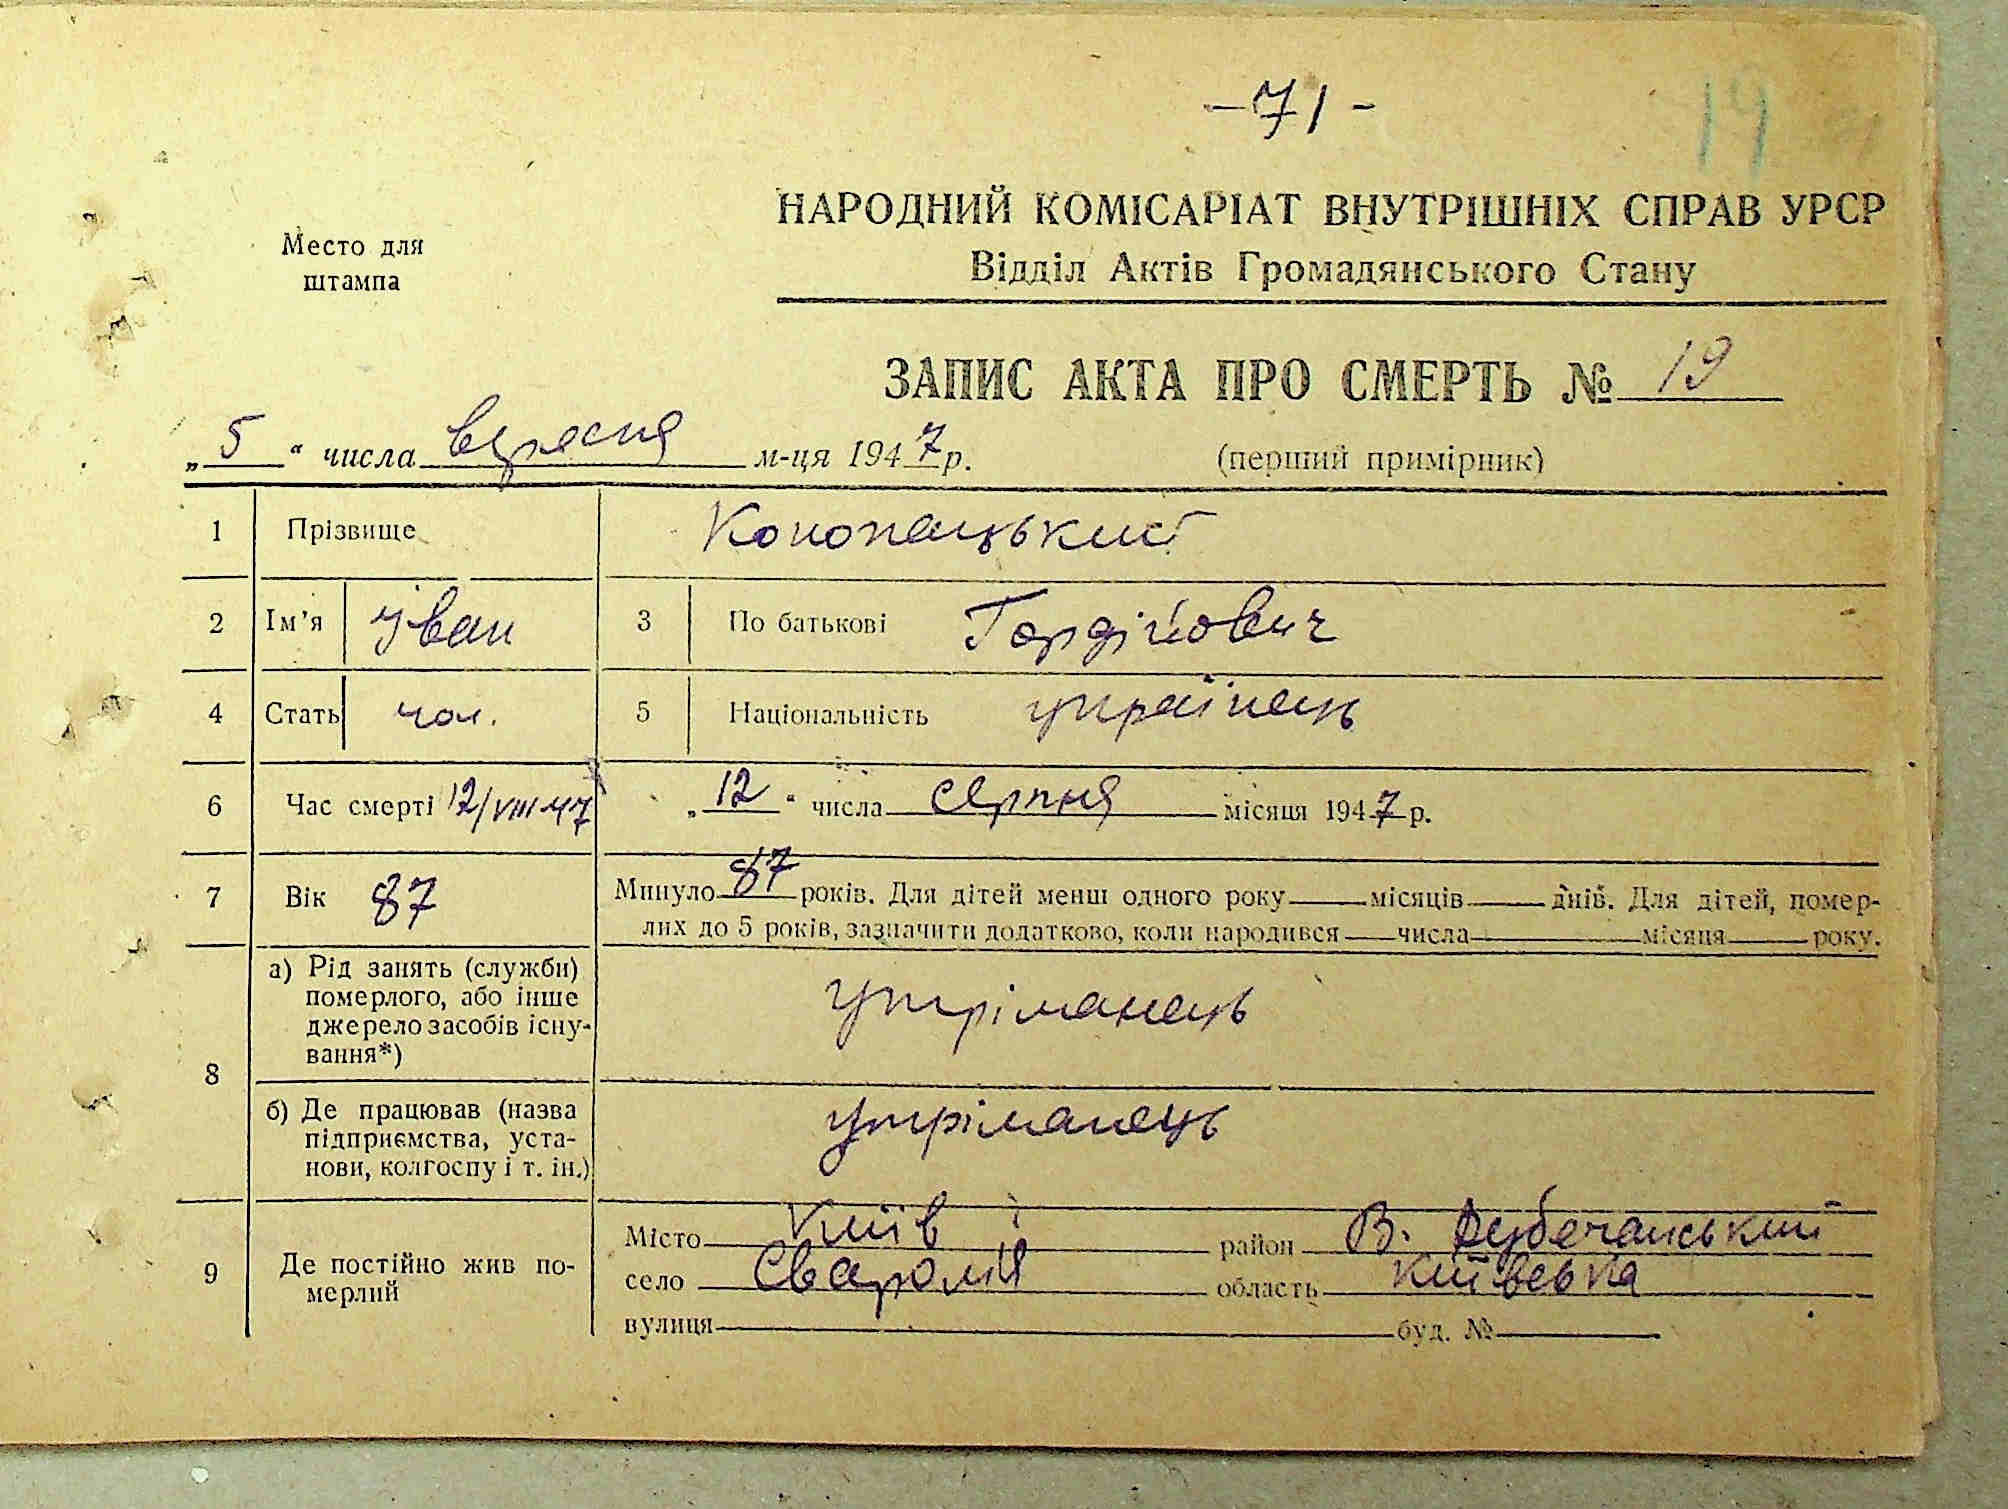 -71-
19
Место для
штампа
НАРОДНИЙ КОМІСАРІАТ ВНУТРІШНІХ СПРАВ УРСР
Відділ Актів Громадянського Стану
ЗАПИС АКТА ПРО СМЕРТЬ № 19
„5“ числа вересня м-ця 1947 р. (перший примірник)
1 Прізвище Конопацький
2 Ім'я Іван 3 По батькові Гордійович
4 Стать чол. 5 Національність українець
6 Час смерті 12/VIII 47 „12“ числа серпня місяця 1947 р.
7 Вік 87 Минуло 87 років. Для дітей менш одного року місяців днів. Для дітей, помер-
лих до 5 років, зазначити додатково, коли народився числа місяця року.
8 а) Рід занять (служби)
померлого, або інше
джерело засобів існу-
вання*) утріманець
б) Де працював (назва
підприємства, уста-
нови, колгоспу і т. ін.) утріманець
9 Де постійно жив по-
мерлий
Місто Київ район В. Дубечанський
село Сваромія область Київська
вулиця буд. №